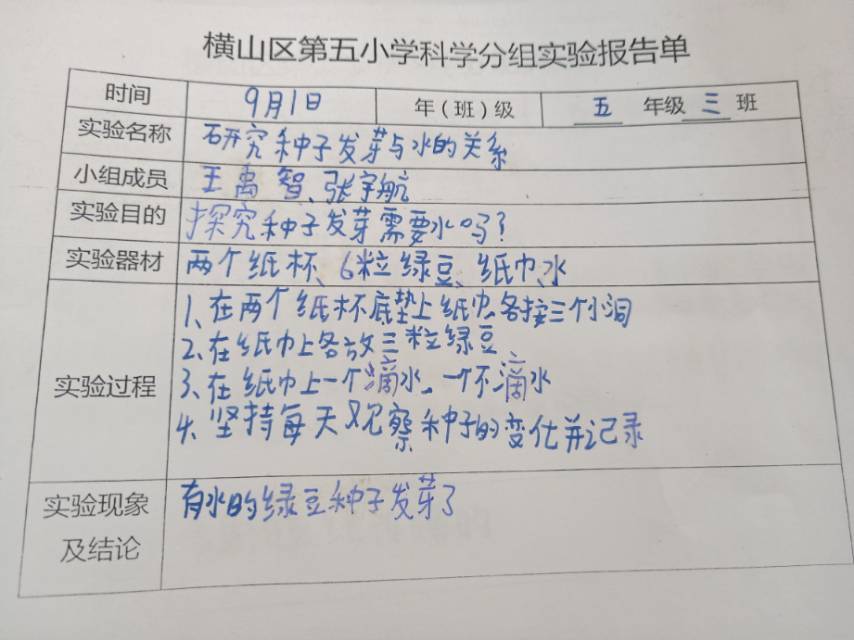 横山区第五小学科学分组实验报告单
时间 9月1日 年(班)级 五 年级 三 班
实验名称 研究种子发芽与水的关系
小组成员 王禹智、张宇航
实验目的 探究种子发芽需要水吗?
实验器材 两个纸杯、6粒绿豆、纸巾、水
1、在两个纸杯底垫上纸巾各按三个小洞
2、在纸巾上各放三粒绿豆
实验过程 3、在纸巾上一个滴水,一个不滴水
4、坚持每天观察种子的变化并记录
实验现象 有水的绿豆种子发芽了
及结论